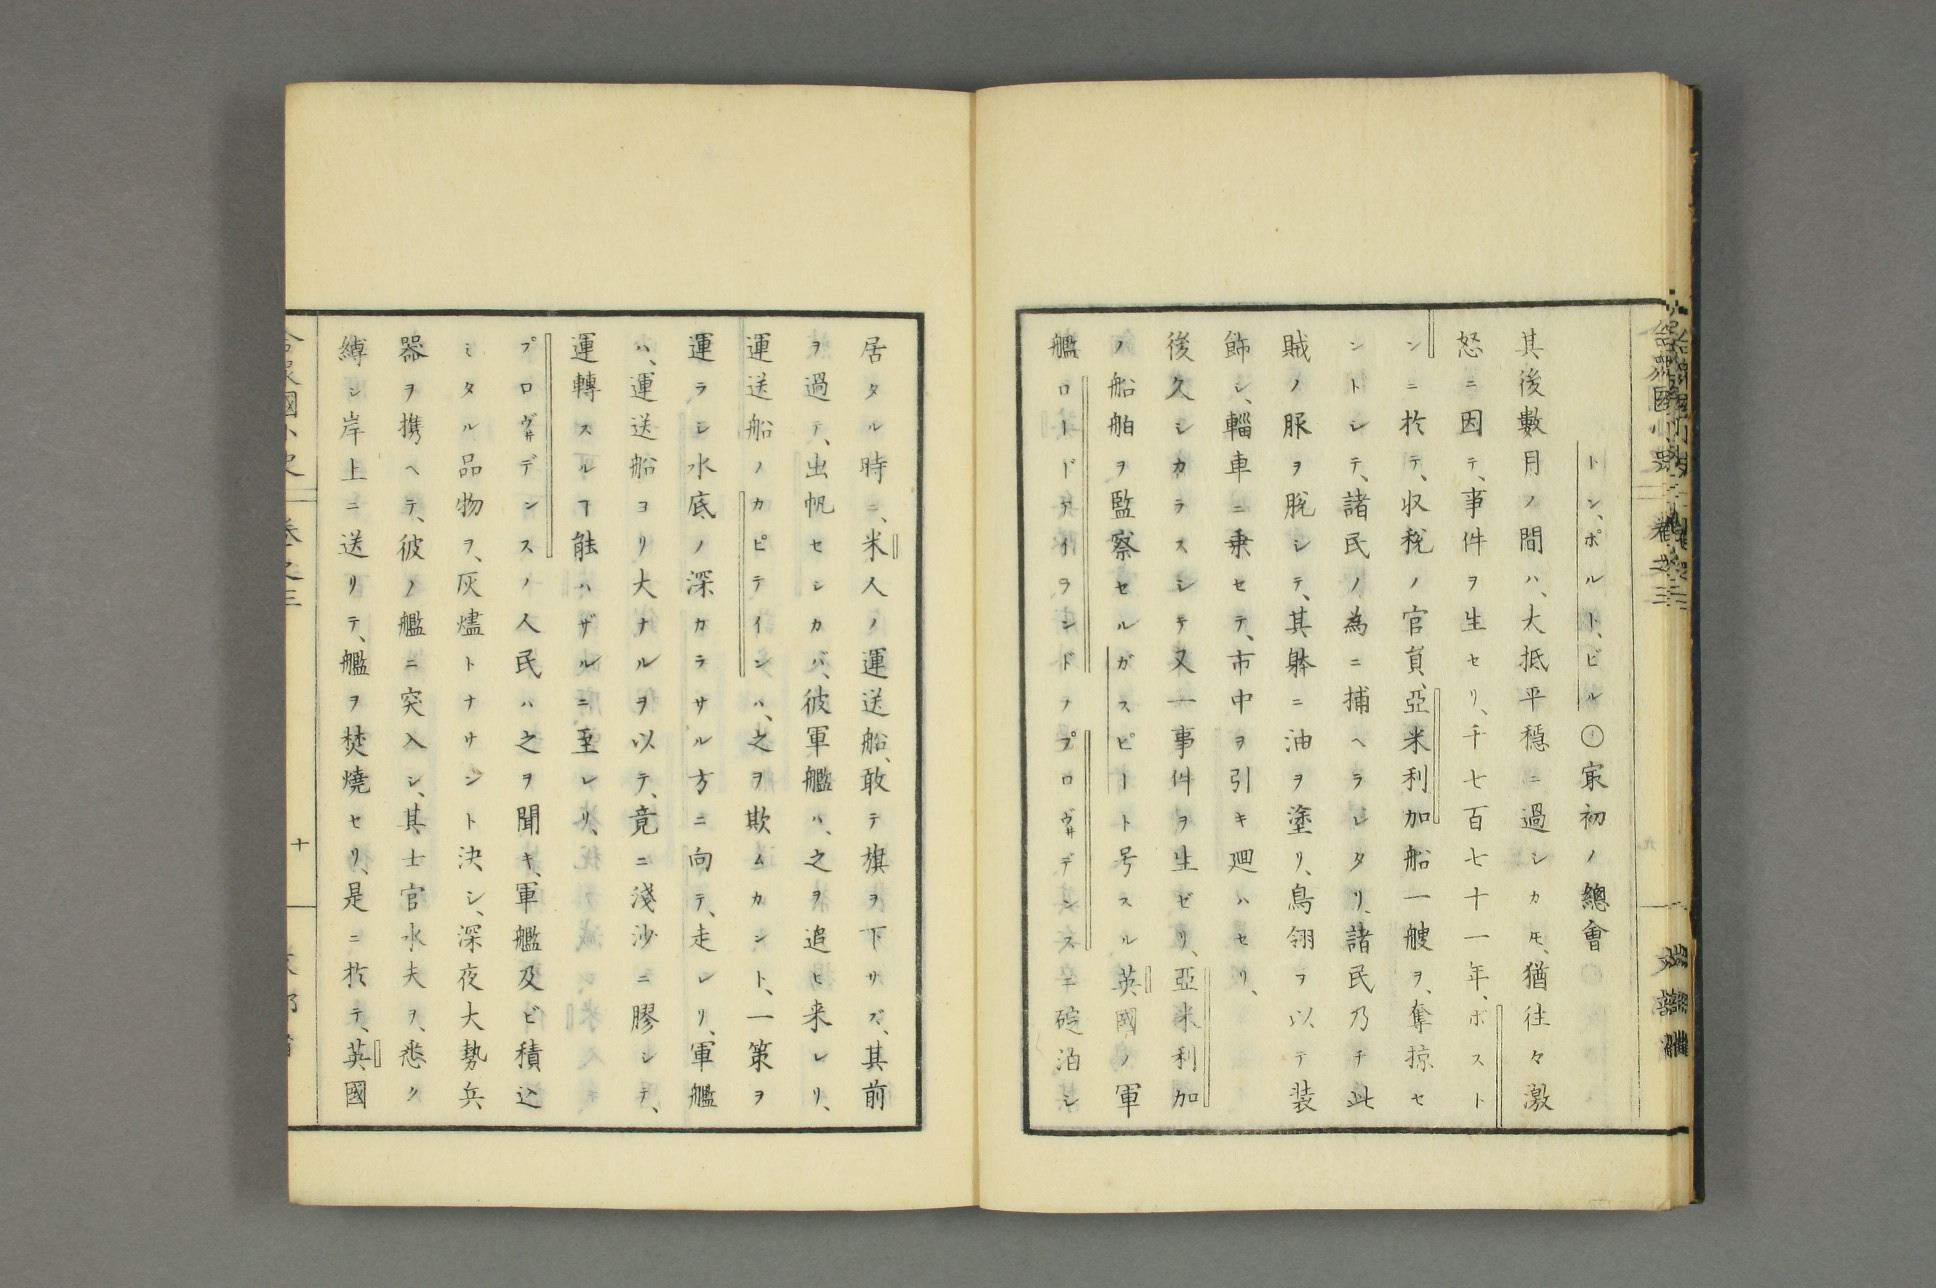 トン、ポルト、ビル〇㝡初ノ總會
其後數月ノ間ハ、大抵平穩ニ過シカ𪜈、猶往々激
怒ニ因テ、事件ヲ生セリ、千七百七十一年、ボスト
ンニ於テ、収稅ノ官員、亞米利加船一艘ヲ、奪掠セ
シトシテ、諸民ノ為ニ捕ヘラレタリ、諸民乃チ此
賊ノ服ヲ脫シテ、其躰ニ油ヲ塗リ、鳥翎ヲ以テ装
飾シ、輜車ニ乗セテ、市中ヲ引キ廻ハセリ、
後久シカラスシテ又一事件ヲ生ゼリ、亞米利加
ノ船舶ヲ監察セルガスピートト号スル英國ノ軍
艦ロードアイランドノプロヴ井デンスニ碇泊シ
居タル時ニ、米人ノ運送船、敢テ旗ヲ下サズ、其前
ヲ過テ、出帆セシカバ、彼軍艦ハ、之ヲ追ヒ来レリ、
運送船ノカピテインハ、之ヲ欺ムカント、一策ヲ
運ラシ水底ノ深カラサル方ニ向テ、走レリ、軍艦
ハ、運送船ヨリ大ナルヲ以テ、竟ニ淺沙ニ膠シテ、
運轉スルヿ能ハザルニ至レリ、
プロヴ井デンスノ人民ハ之ヲ聞キ、軍艦及ビ積込
ミタル品物ヲ、灰燼トナサント決シ、深夜大勢兵
器ヲ携ヘテ、彼ノ艦ニ突入シ、其士官水夫ヲ、悉ク
縛シ岸上ニ送リテ、艦ヲ焚燒セリ、是ニ於テ、英國
十